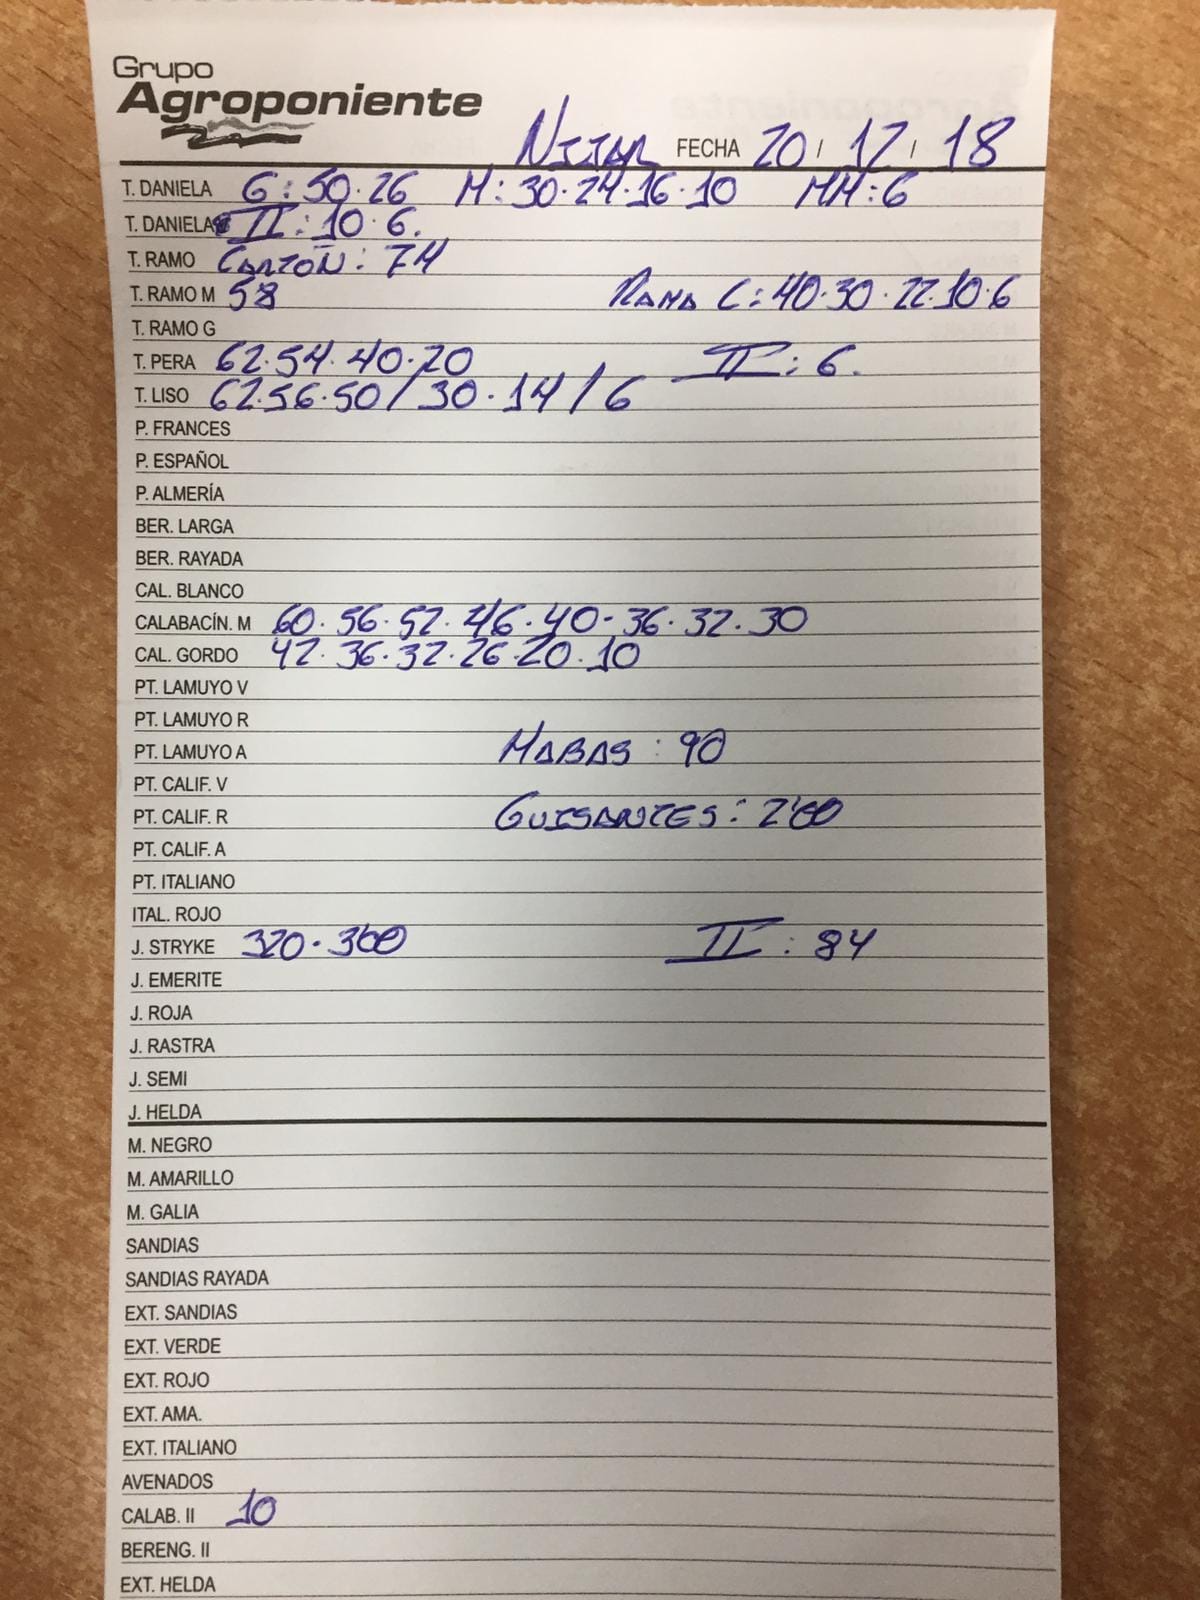 Grupo
Agroponiente
NIJAR FECHA 20 / 12 / 18
T. DANIELA G: 50·26 M: 30·24·16·10 MM: 6
T. DANIELA II: 10·6.
T. RAMO CARTÓN: 74
T. RAMO M 58 RAMA C: 40·30·22·10·6
T. RAMO G
T. PERA 62·54·40·20 II: 6.
T. LISO 62·56·50 / 30·14 / 6
P. FRANCES
P. ESPAÑOL
P. ALMERÍA
BER. LARGA
BER. RAYADA
CAL. BLANCO
CALABACÍN. M 60·56·52·46·40·36·32·30
CAL. GORDO 42·36·32·26·20·10
PT. LAMUYO V
PT. LAMUYO R
PT. LAMUYO A HABAS: 90
PT. CALIF. V
PT. CALIF. R GUISANTES: 2'60
PT. CALIF. A
PT. ITALIANO
ITAL. ROJO
J. STRYKE 320·300 II: 84
J. EMERITE
J. ROJA
J. RASTRA
J. SEMI
J. HELDA
M. NEGRO
M. AMARILLO
M. GALIA
SANDIAS
SANDIAS RAYADA
EXT. SANDIAS
EXT. VERDE
EXT. ROJO
EXT. AMA.
EXT. ITALIANO
AVENADOS
CALAB. II 10
BERENG. II
EXT. HELDA